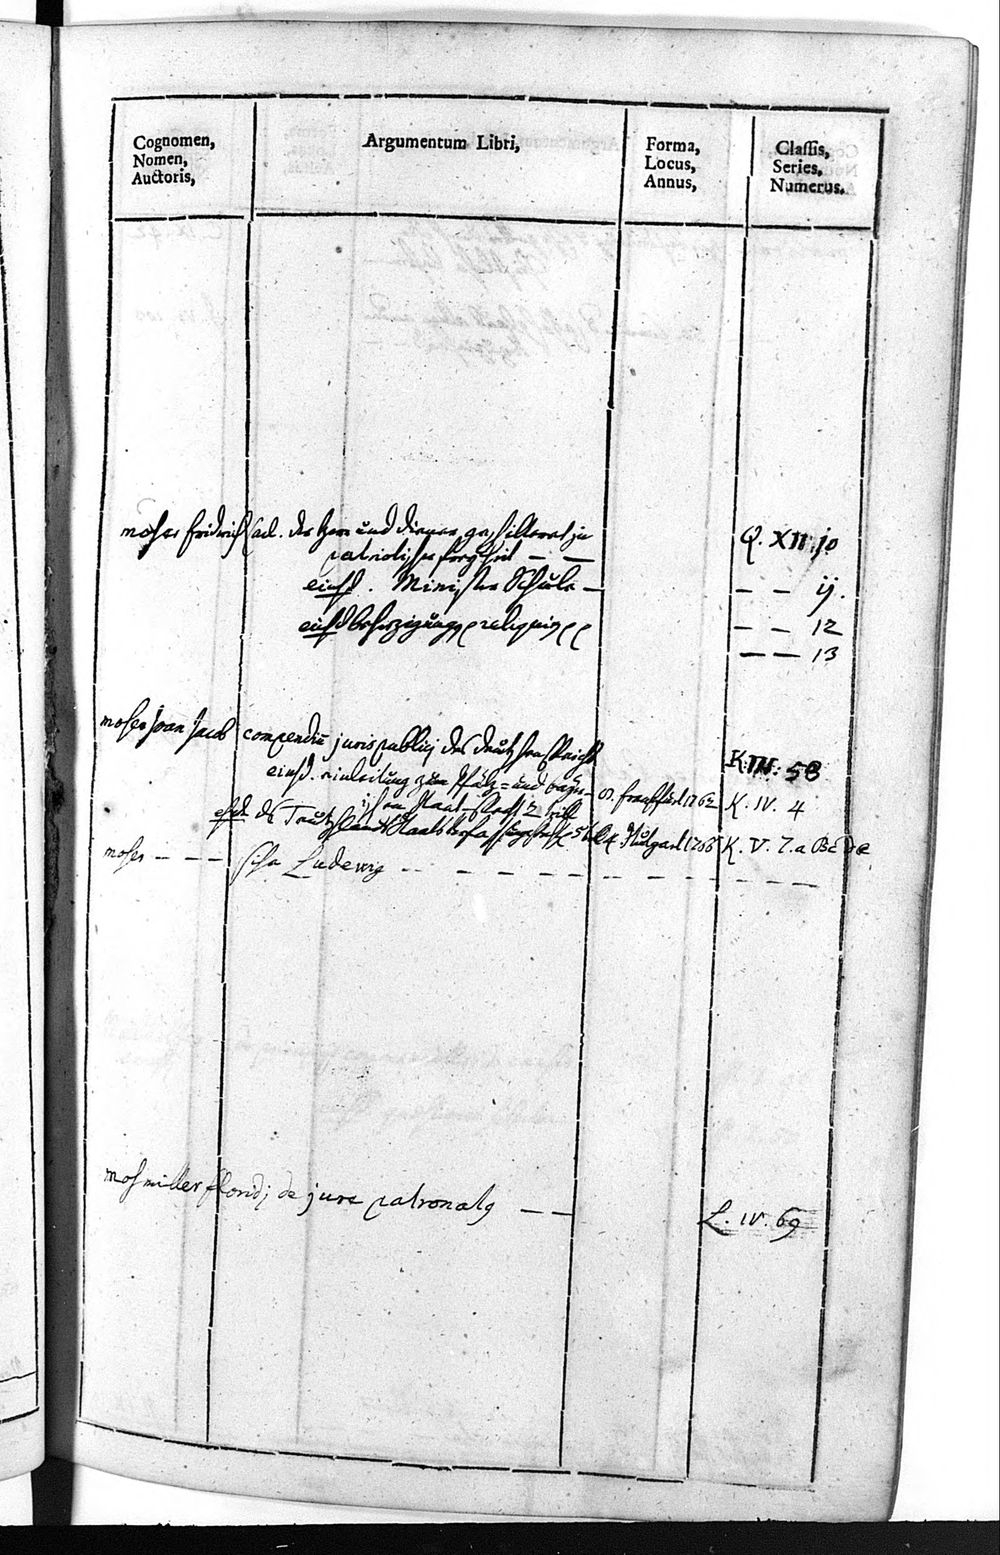 Cognomen,
Nomen,
Auctoris,
Argumentum Libri,
Forma,
Locus,
Annus,
Classis,
Series,
Numerus.
moser Fridrich Carl. der Herr und Diener geschildert
patriotischer freyheit — —
Q. XII. 10
eiusd. Minister Schule —
— — ij.
eiusd beherzigung reliquien
— — 12
— — 13
moser Joan Jacob compendiū juris publicj des deutschen Reichs
K. III. 58
eiusd. einleitung zum Pfalz= und bayr=
ischen Staat 8. franckfurt 1762 K. IV. 4
eiusd des Teutschlands Staats 4 Stutgard K. V. 7. a B c d e
moser — — — sihe Ludewig — — — — — —
mosmiller floridj de jure patronatg — —
L. IV. 69